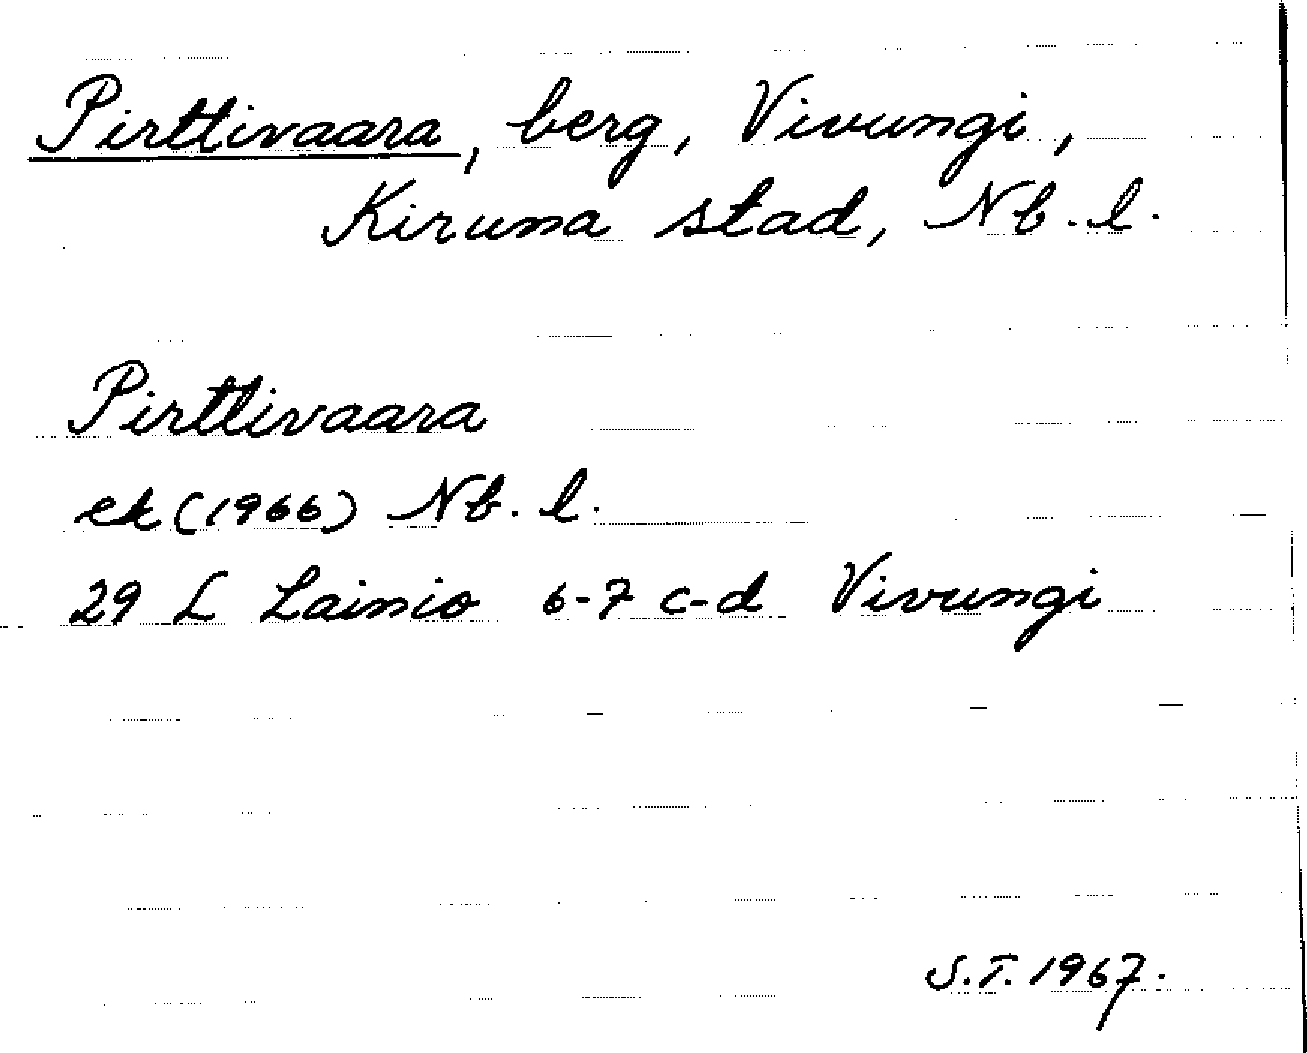 Pirttivaara, berg, Vivungi,
Kiruna stad, Nb. l.
Pirttivaara
ek (1966) Nb. l.
29 L Lainio 6-7 c-d Vivungi
S.T. 1967.